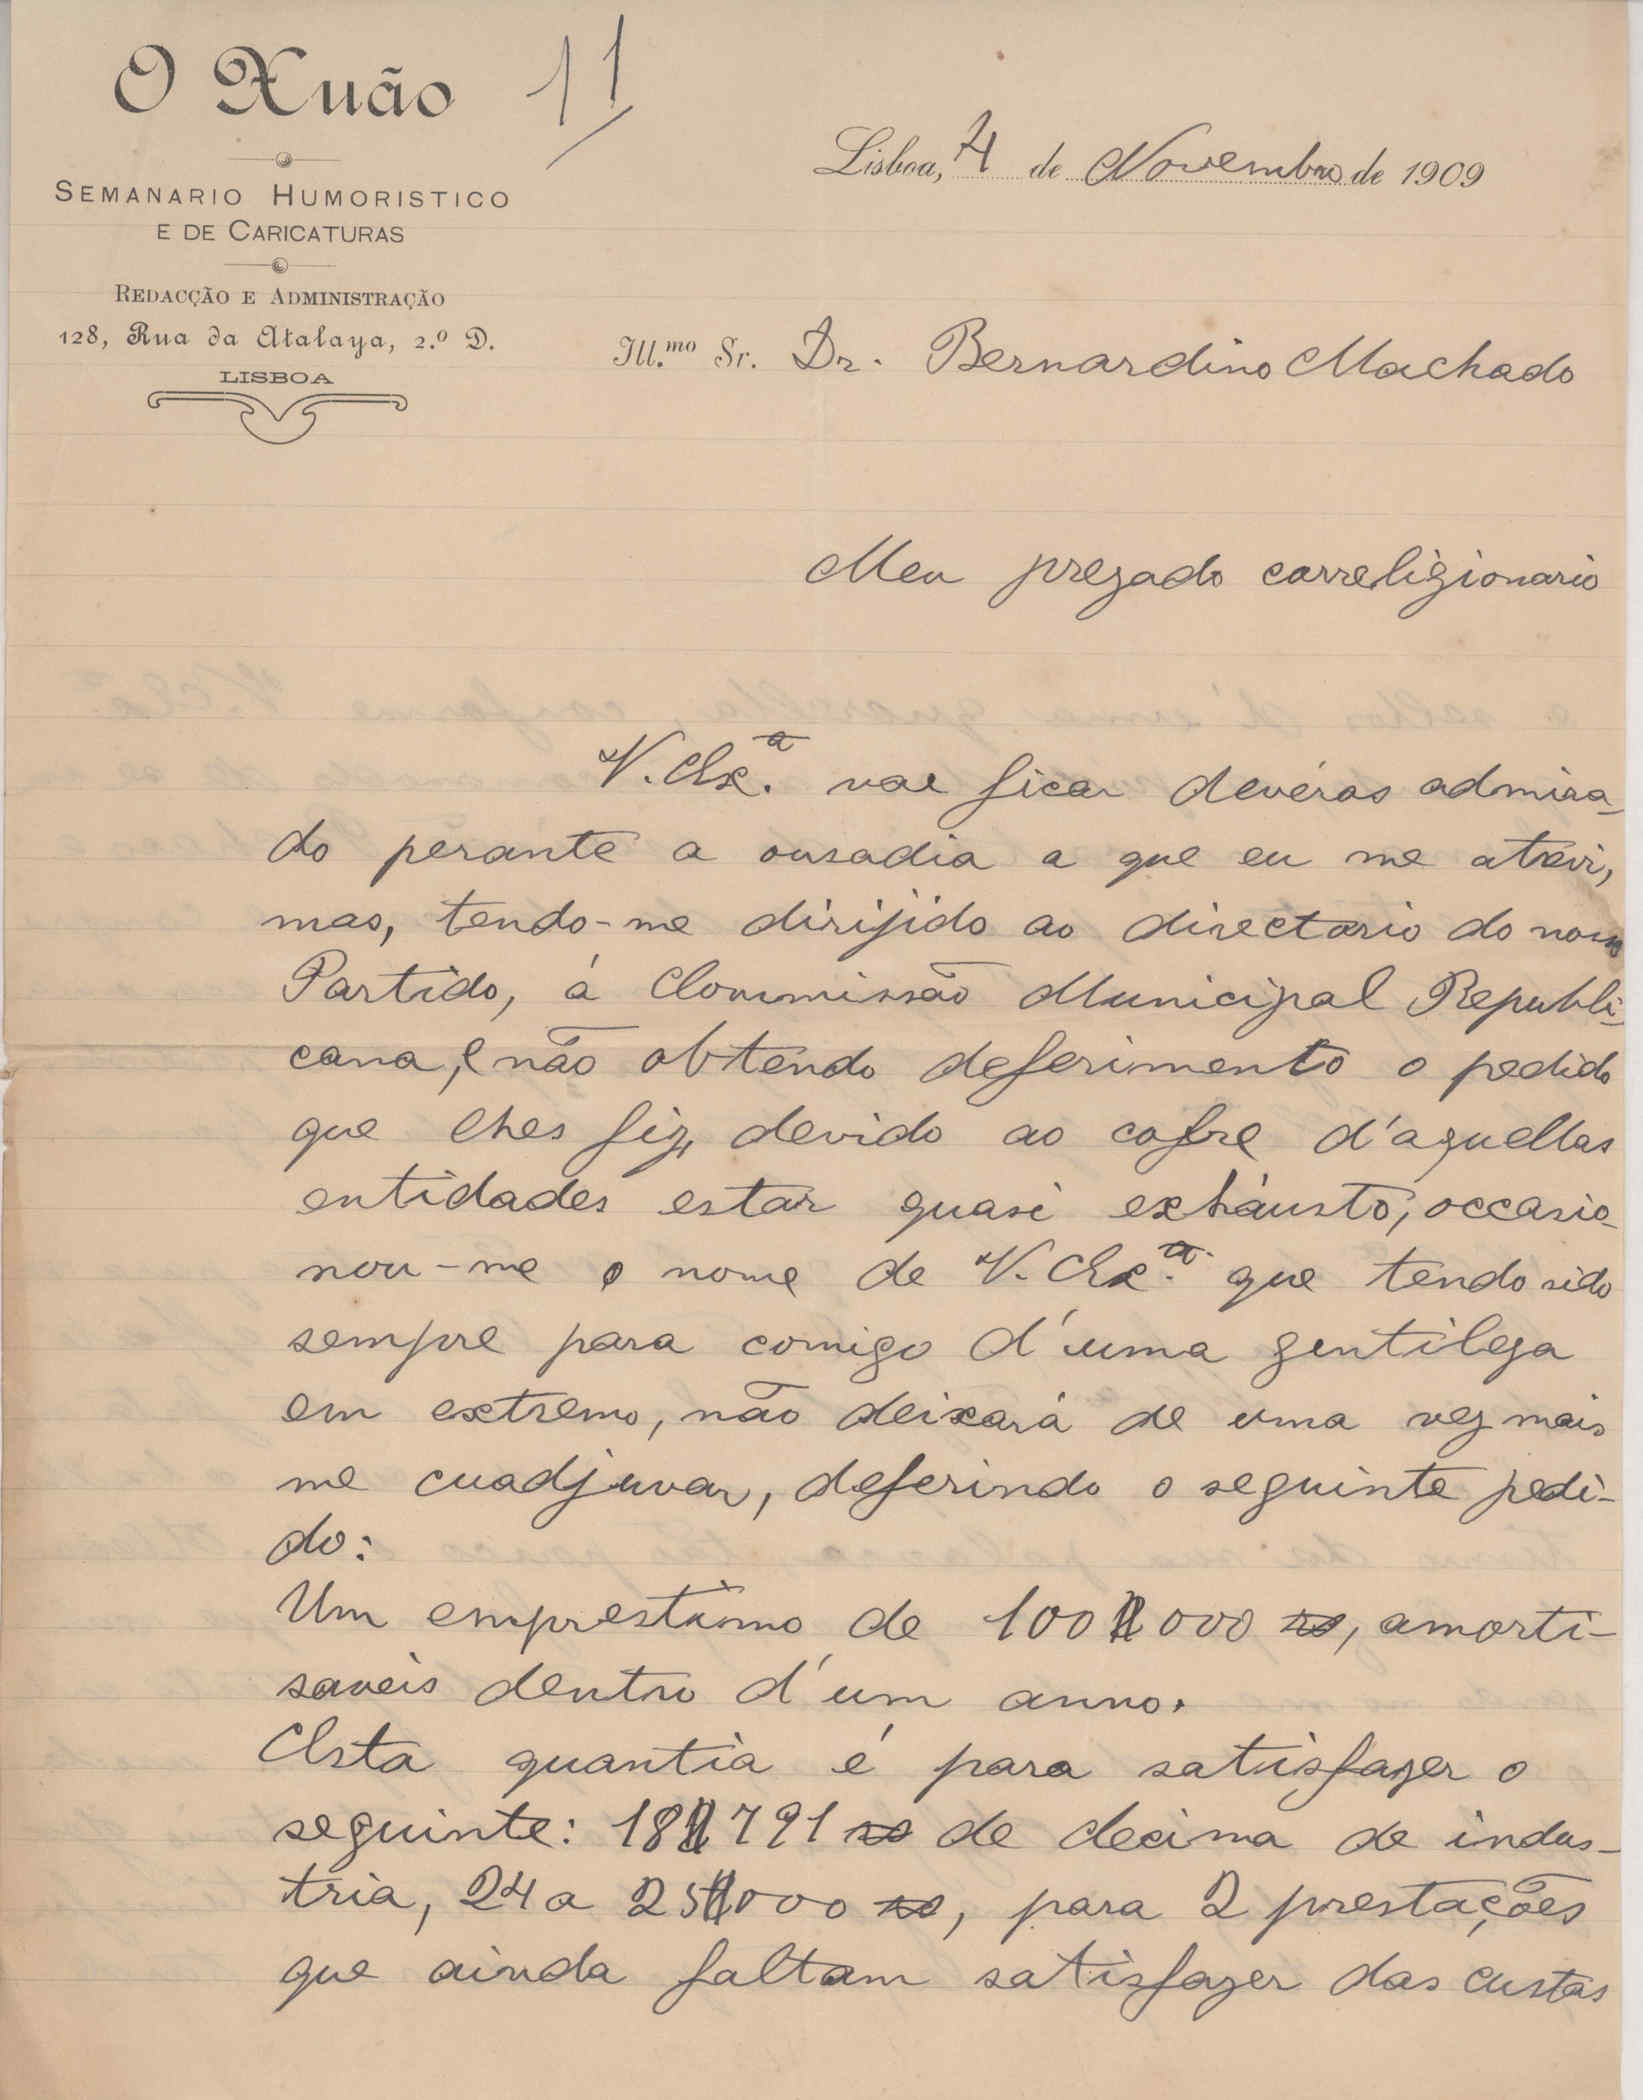 O Xuão
11
SEMANARIO HUMORISTICO
E DE CARICATURAS
REDACÇÃO E ADMINISTRAÇÃO
128, Rua da Atalaya, 2.º D.
LISBOA
Lisboa, 4 de Novembro de 1909
Ill.mo Sr. Dr. Bernardino Machado
Meu prezado correligionario
V. Ex.ª vae ficar devéras admira-
do perante a ousadia a que eu me atrevi,
mas, tendo-me dirijido ao directorio do nosso
Partido, á Commissão Municipal Republi-
cana, e não obtendo deferimento o pedido
que lhes fiz, devido ao cofre d'aquellas
entidades estar quasi exháusto, occasio-
nou-me o nome de V. Ex.ª que tendo sido
sempre para comigo d'uma gentileza
em extremo, não deixará de uma vez mais
me cuadjuvar, deferindo o seguinte pedi-
do:
Um emprestimo de 100$000 rs, amorti-
saveis dentro d'um anno.
Esta quantia é para satisfazer o
seguinte: 18$791 rs de decima de indus-
tria, 24 a 25$000 rs, para 2 prestações
que ainda faltam satisfazer das custas